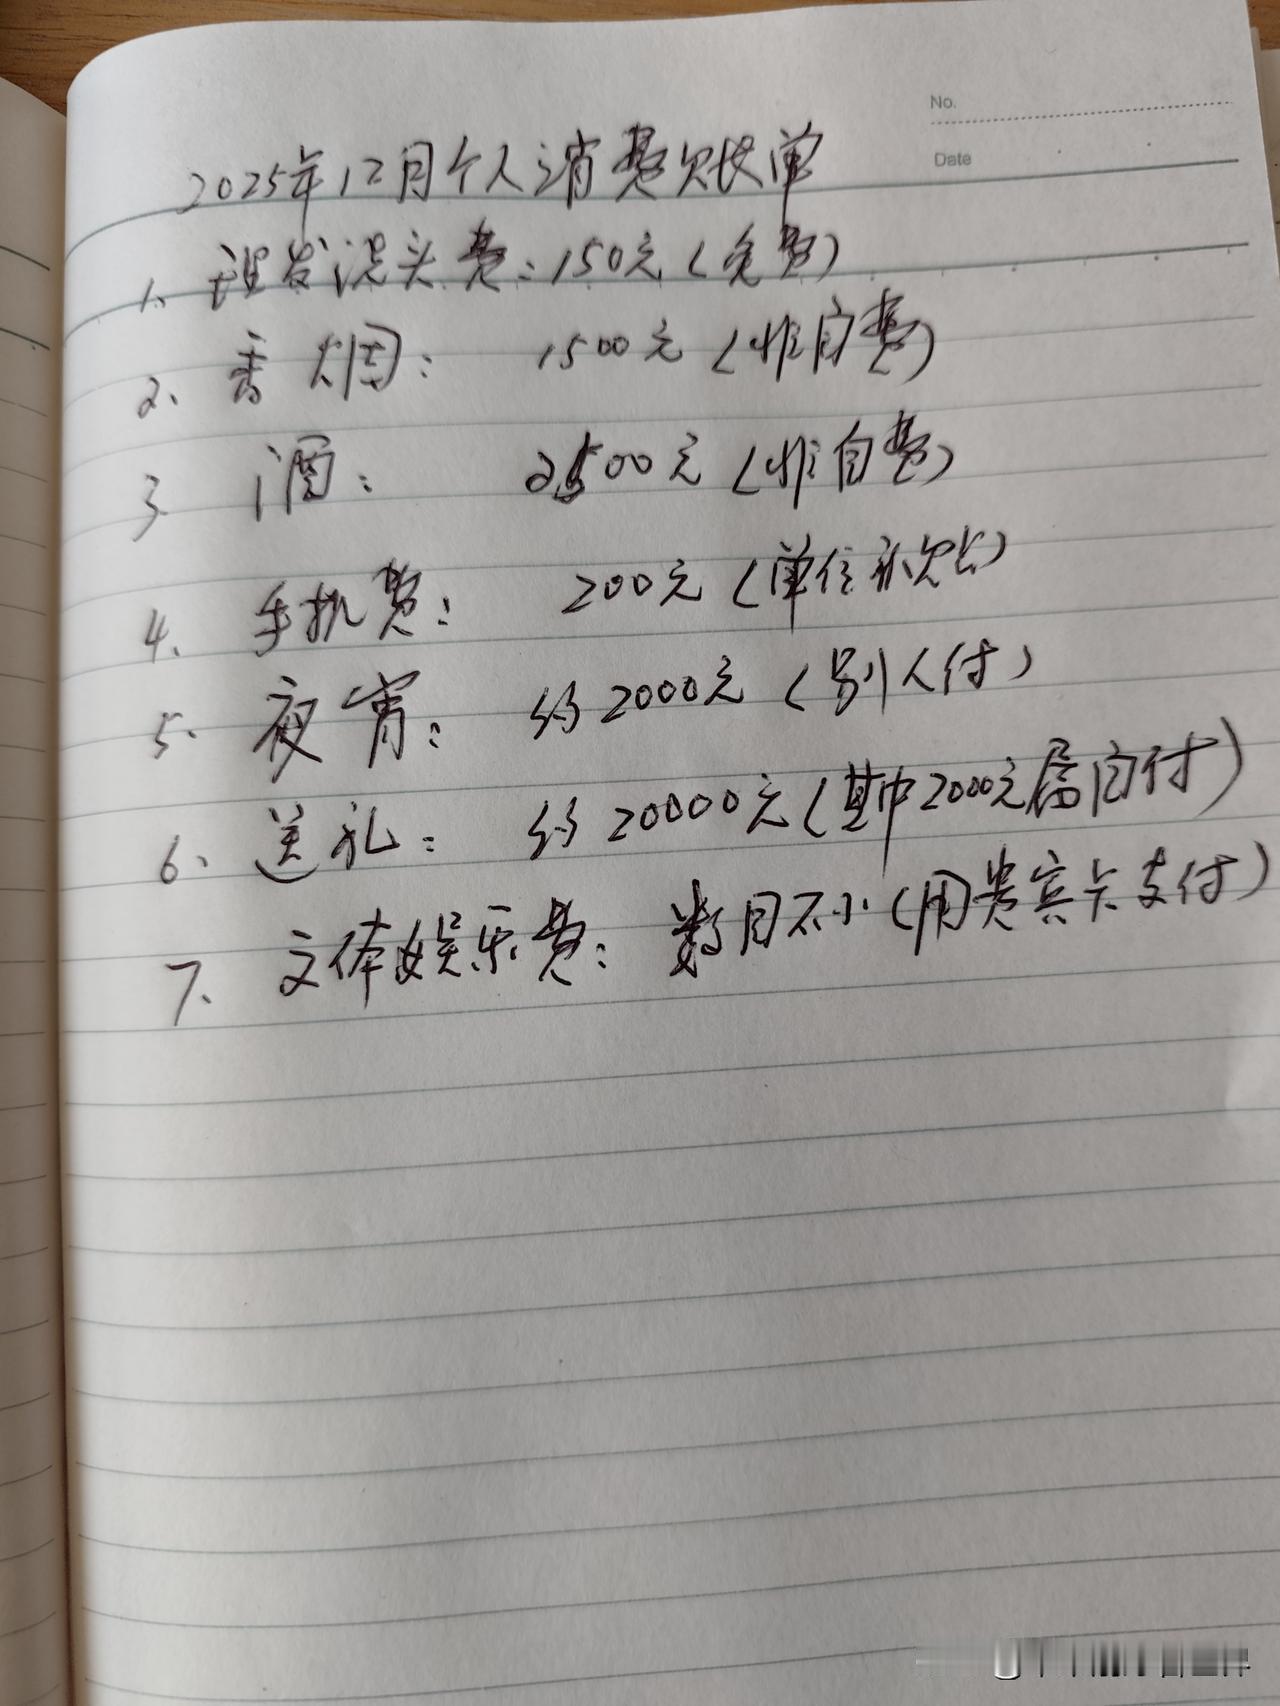 No.
Date
2025年12月个人消费账单
1、理发洗头费：150元（免费）
2、香烟： 1500元（非自费）
3 酒： 2500元（非自费）
4、手机费： 200元（单位
5、夜宵： 约2000元（别人付）
6、送礼： 约20000元（其中2000元属自付）
7、文体娱乐费：数目不小（用贵宾卡支付）